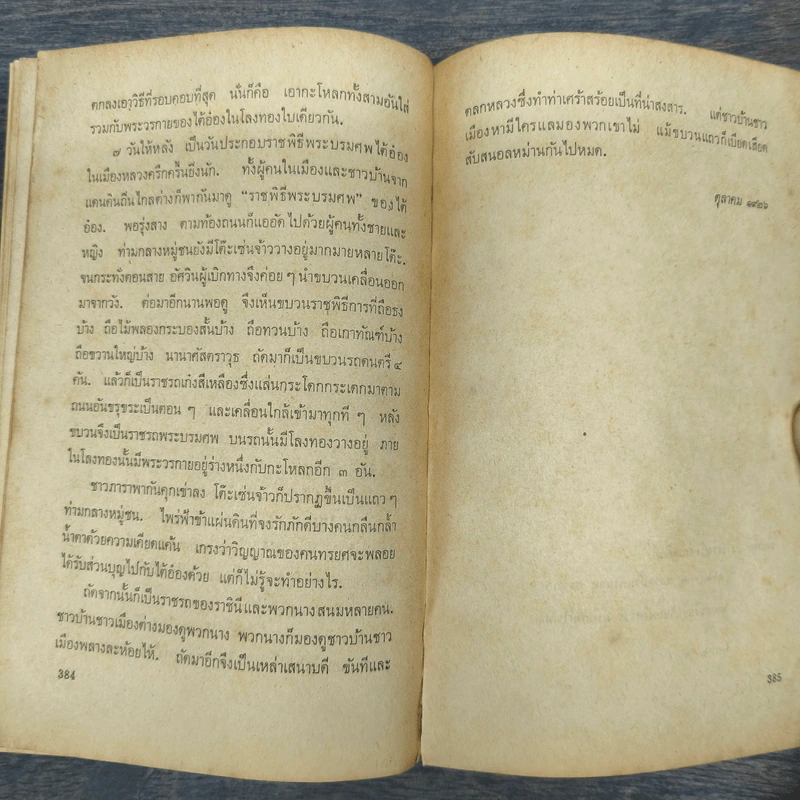 ตกลงเอาวิธีที่รอบคอบที่สุด นั่นก็คือ เอากะโหลกทั้งสามอันใส่
รวมกับพระวรกายของไต้อ๋องในโลงทองใบเดียวกัน.
๗ วันให้หลัง เป็นวันประกอบราชพิธีพระบรมศพไต้อ๋อง
ในเมืองหลวงครึกครื้นยิ่งนัก. ทั้งผู้คนในเมืองและชาวบ้านจาก
แดนดินถิ่นไกลต่างก็พากันมาดู “ราชพิธีพระบรมศพ” ของไต้
อ๋อง. พอรุ่งสาง ตามท้องถนนก็แออัดไปด้วยผู้คนทั้งชายและ
หญิง ท่ามกลางหมู่ชนยังมีโต๊ะเซ่นจ้าววางอยู่มากมายหลายโต๊ะ.
จนกระทั่งตอนสาย อัศวินผู้เบิกทางจึงค่อย ๆ นำขบวนเคลื่อนออก
มาจากวัง. ต่อมาอีกนานพอดู จึงเห็นขบวนราชพิธีการที่ถือธง
บ้าง ถือไม้พลองกระบองสั้นบ้าง ถือทวนบ้าง ถือเกาทัณฑ์บ้าง
ถือขวานใหญ่บ้าง นานาศัสตราวุธ ถัดมาก็เป็นขบวนรถดนตรี ๔
คัน. แล้วก็เป็นราชรถเก๋งสีเหลืองซึ่งแล่นกระโดกกระเดกมาตาม
ถนนอันขรุขระเป็นตอน ๆ และเคลื่อนใกล้เข้ามาทุกที ๆ หลัง
ขบวนจึงเป็นราชรถพระบรมศพ บนรถนั้นมีโลงทองวางอยู่ ภาย
ในโลงทองนั้นมีพระวรกายอยู่ร่างหนึ่งกับกะโหลกอีก ๓ อัน.
ชาวภาราพากันคุกเข่าลง โต๊ะเซ่นจ้าวก็ปรากฏขึ้นเป็นแถว ๆ
ท่ามกลางหมู่ชน. ไพร่ฟ้าข้าแผ่นดินที่จงรักภักดีบางคนกลืนกล้ำ
น้ำตาด้วยความเคียดแค้น เกรงว่าวิญญาณของคนทรยศจะพลอย
ได้รับส่วนบุญไปกับไต้อ๋องด้วย แต่ก็ไม่รู้จะทำอย่างไร.
ถัดจากนั้นก็เป็นราชรถของราชินีและพวกนางสนมหลายคน.
ชาวบ้านชาวเมืองต่างมองดูพวกนาง พวกนางก็มองดูชาวบ้านชาว
เมืองพลางละห้อยไห้. ถัดมาอีกจึงเป็นเหล่าเสนาบดี ขันทีและ
384
ตลกหลวงซึ่งทำท่าเศร้าสร้อยเป็นที่น่าสงสาร. แต่ชาวบ้านชาว
เมืองหามีใครแลมองพวกเขาไม่ แม้ขบวนแถวก็เบียดเสียด
สับสนอลหม่านกันไปหมด.
ตุลาคม ๑๙๒๖
385